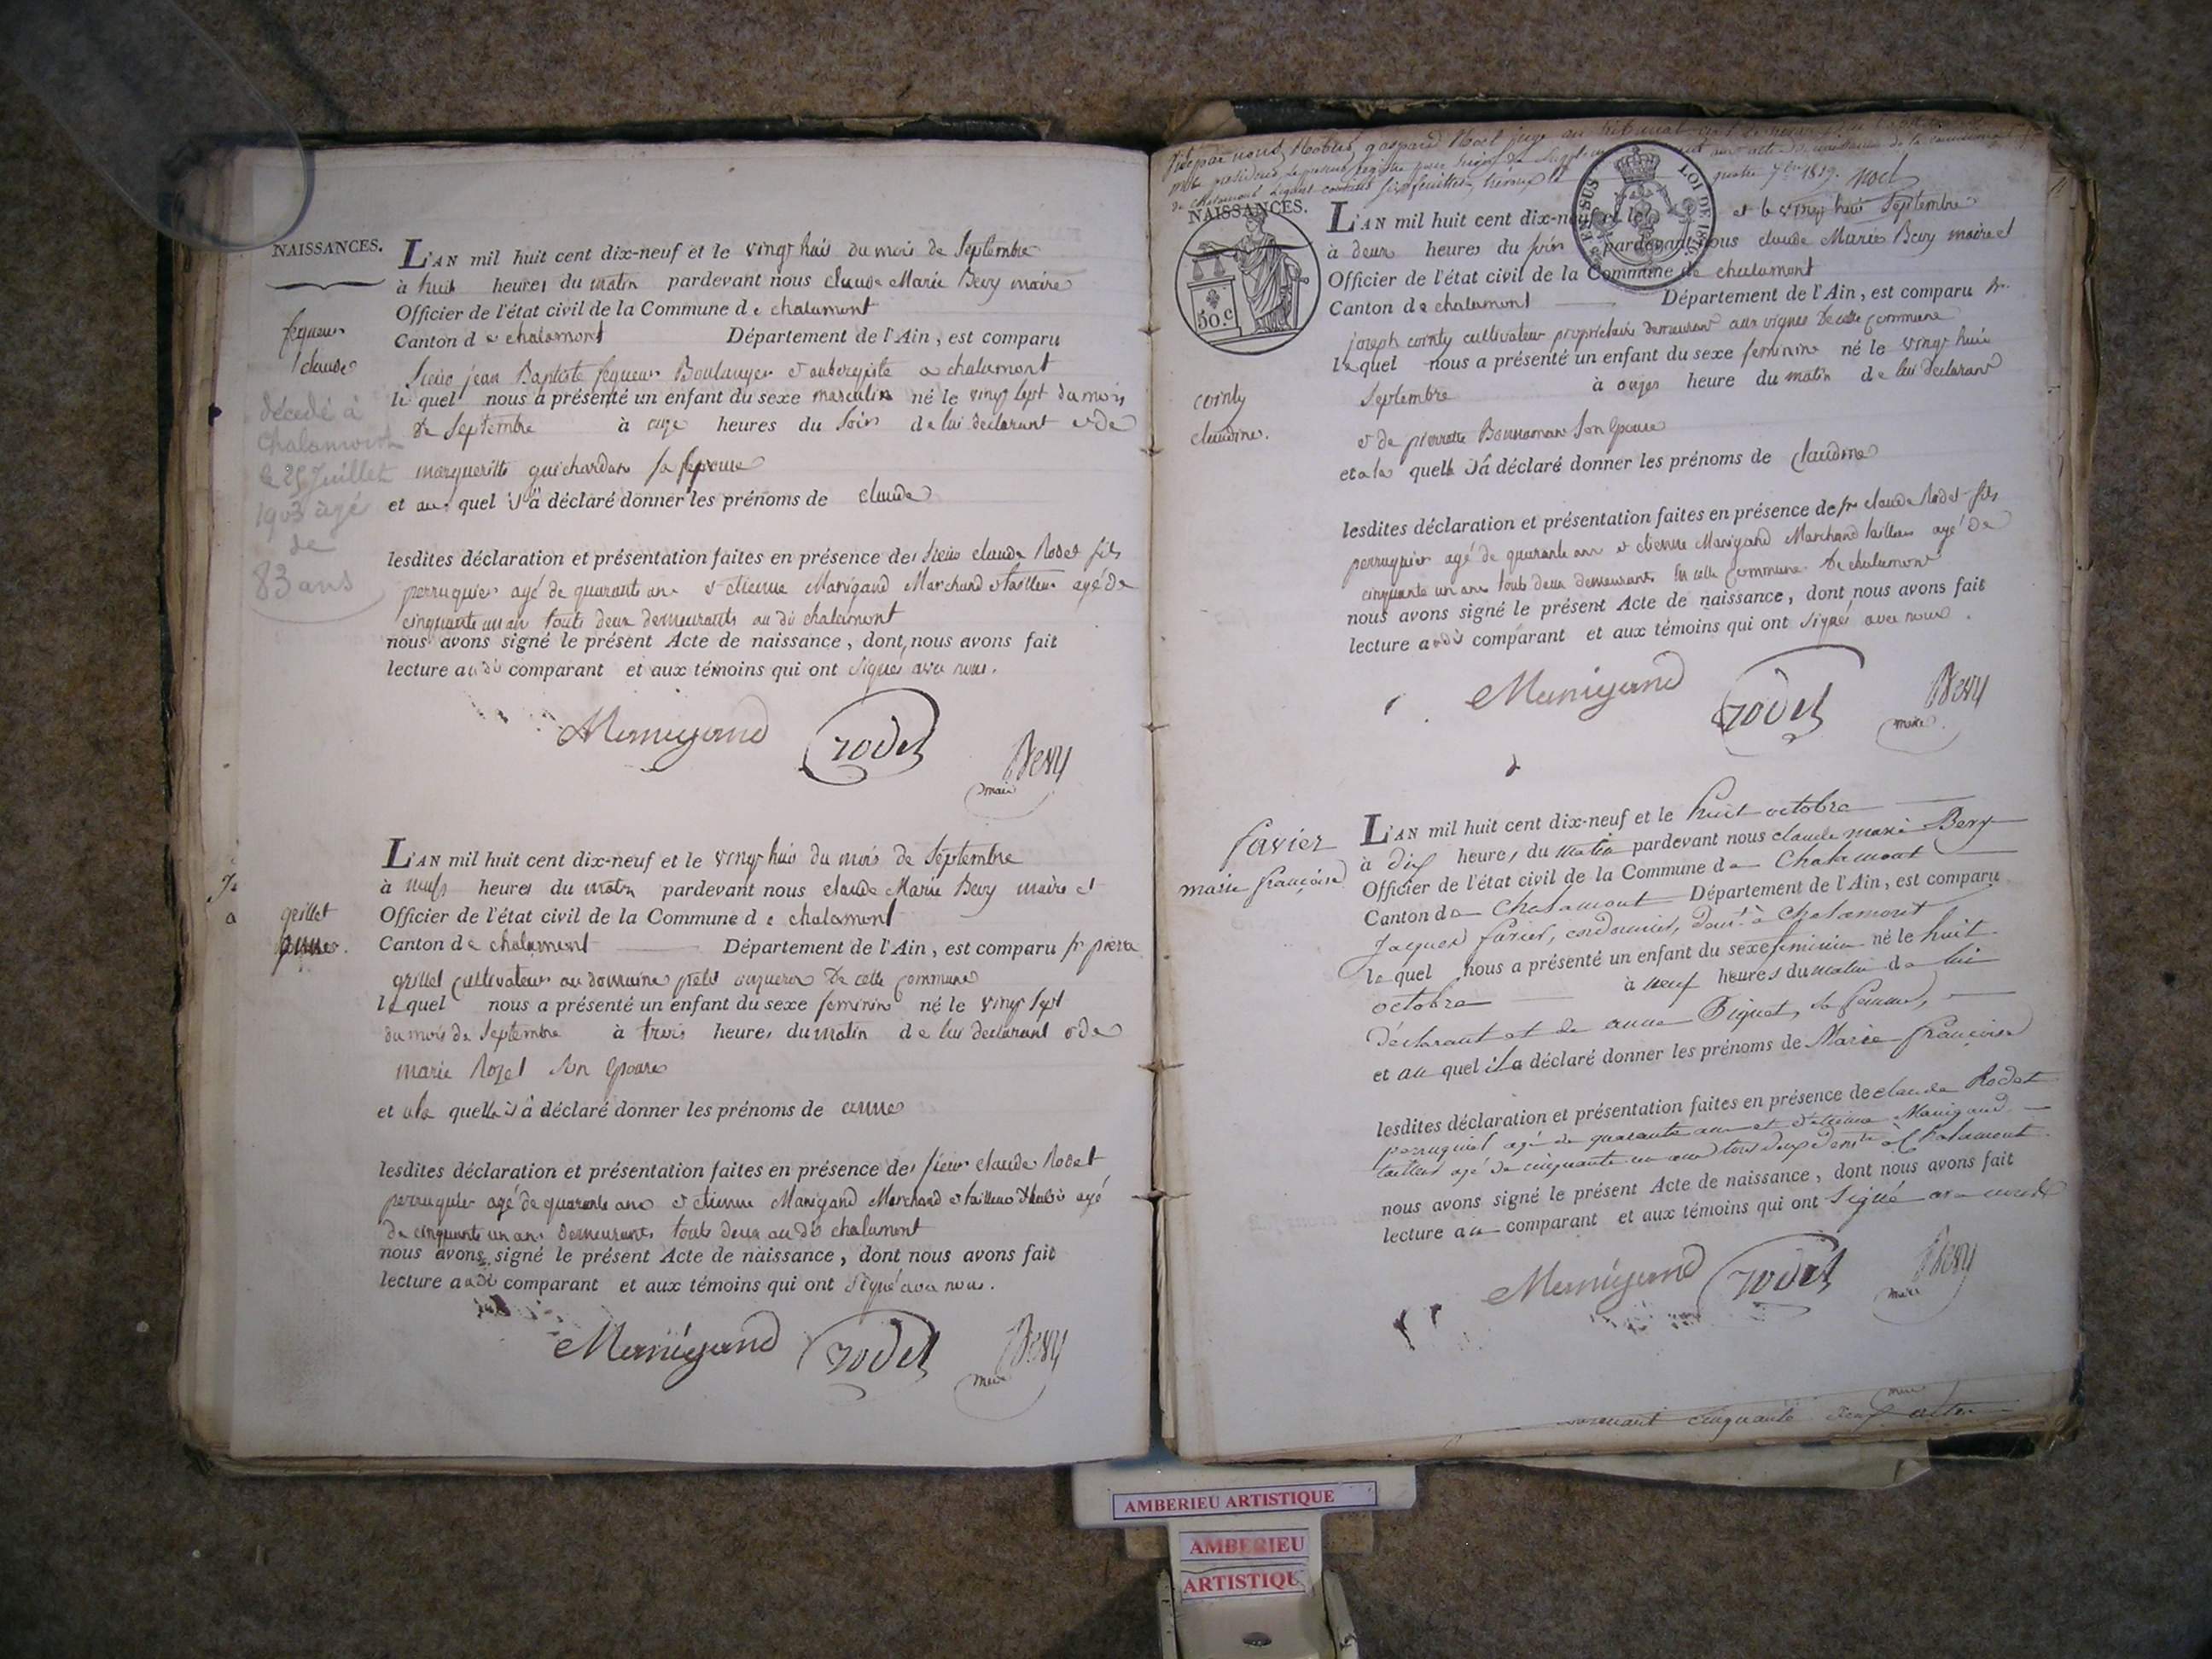 NAISSANCES.
fequeur
claude
décédé à
Chalamont
le 25 Juillet
1903 agé
de
83 ans
L'AN mil huit cent dix-neuf et le vingt huit du mois de Septembre
à huit heures du matin pardevant nous claude Marie Bevy maire
Officier de l'état civil de la Commune de chalamont
Canton de chalamont Département de l'Ain, est comparu
Sieur jean Baptiste fequeur Boulanger et aubergiste a chalamont
le quel nous a présenté un enfant du sexe masculin né le vingt sept du mois
de Septembre à onze heures du Soir de lui declarant et de
margueritte guichardan Sa
et au quel il a déclaré donner les prénoms de claude
lesdites déclaration et présentation faites en présence des Sieur claude Rodet fils
perruquier agé de quarante ans et etienne Manigand Marchand tailleur agé de
cinquante un an touts deux demeurants au dit chalamont
nous avons signé le présent Acte de naissance, dont nous avons fait
lecture au dit comparant et aux témoins qui ont signés avec nous.
Manigand rodet Bevy
maire
grillet
anne.
L'AN mil huit cent dix-neuf et le vingt huit du mois de Septembre
à neufs heures du matin pardevant nous claude Marie Bevy maire et
Officier de l'état civil de la Commune de chalamont
Canton de chalamont Département de l'Ain, est comparu sr pierre
grillet cultivateur au domaine petit de cette commune
le quel nous a présenté un enfant du sexe feminin né le vingt sept
du mois de Septembre à trois heures du matin de lui declarant et de
marie Rozet Son Epouse
et a la quelle il a déclaré donner les prénoms de anne
lesdites déclaration et présentation faites en présence des sieur claude Rodet
perruquier agé de quarante ans et etienne Manigand Marchand et tailleur d'habit agé
de cinquante un ans demeurants touts deux au dit chalamont
nous avons signé le présent Acte de naissance, dont nous avons fait
lecture au dit comparant et aux témoins qui ont Signé avec nous.
Manigand rodet Bevy
maire
Noel juge au tribunal
quatre 7bre 1819. Noel
NAISSANCES.
50.c
EN SUS
LOI DE 1816
cointy
claudine.
L'AN mil huit cent dix-neuf et le et le vingt huit Septembre
à deux heures du soir pardevant nous claude Marie Bevy maire et
Officier de l'état civil de la Commune de chalamont
Canton de chalamont Département de l'Ain, est comparu sr.
joseph cointy cultivateur proprietaire demeurant aux vignes de cette commune
le quel nous a présenté un enfant du sexe feminin né le vingt huit
Septembre à onzes heure du matin de lui declarant
et de pierrette Bonnaman Son Epouse
et a la quelle il a déclaré donner les prénoms de claudine
lesdites déclaration et présentation faites en présence de sr claude Rodet fils
perruquier agé de quarante ans et etienne Manigand Marchand tailleur agé de
cinquante un ans touts deux demeurants en cette commune de chalamont
nous avons signé le présent Acte de naissance, dont nous avons fait
lecture au dit comparant et aux témoins qui ont signés avec nous.
Manigand rodet Bevy
maire
favier
marie françoise
L'AN mil huit cent dix-neuf et le huit octobre
à dix heures du matin pardevant nous claude marie Bevy
Officier de l'état civil de la Commune de Chalamont
Canton de Chalamont Département de l'Ain, est comparu
Jacques favier, cordonnier, demt. à Chalamont
le quel nous a présenté un enfant du sexe feminin né le huit
octobre à neuf heures du matin de lui
déclarant et de anne Piquet, sa femme,
et au quel il a déclaré donner les prénoms de Marie françoise
lesdites déclaration et présentation faites en présence de claude Rodet
perruquier agé de quarante ans et d'etienne Manigand
tailleur agé de cinquante un ans tous deux demts à Chalamont
nous avons signé le présent Acte de naissance, dont nous avons fait
lecture au comparant et aux témoins qui ont Signé avec nous
Manigand rodet Bevy
maire
contenant cinquante deux actes
AMBERIEU ARTISTIQUE
AMBERIEU
ARTISTIQU